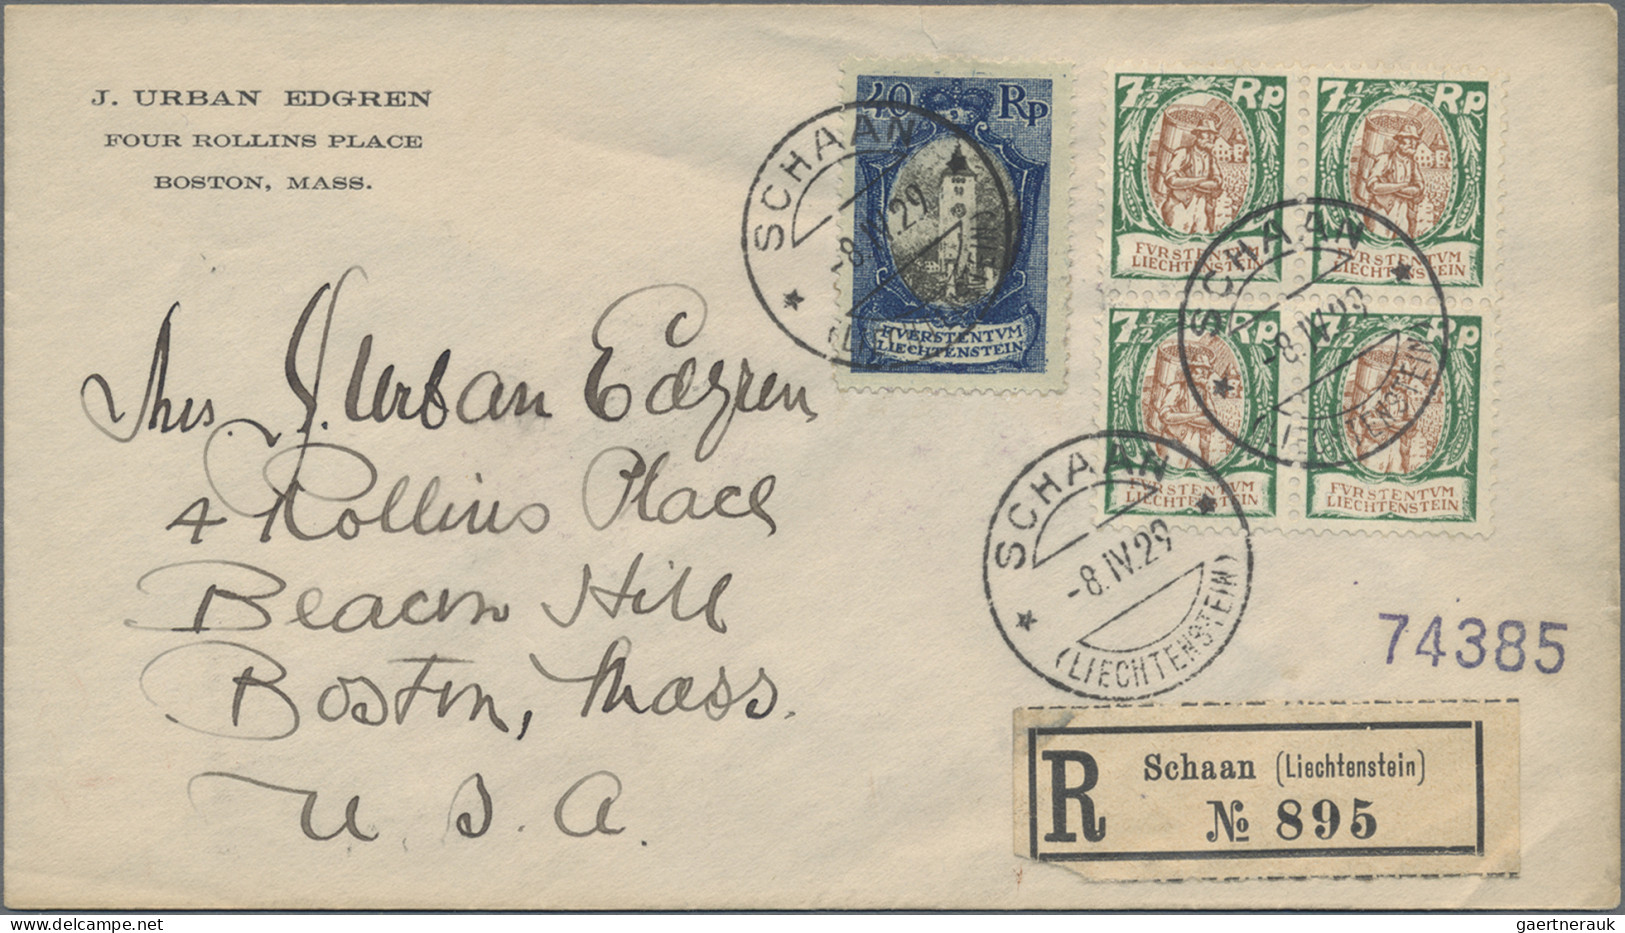 J. URBAN EDGREN
FOUR ROLLINS PLACE
BOSTON, MASS.
40 Rp
FVERSTENTVM
LIECHTENSTEIN
SCHAAN
-8.IV.29
7½ Rp
FVRSTENTVM
LIECHTENSTEIN
7½ Rp
FVRSTENTVM
LIECHTENSTEIN
7½ Rp
FVRSTENTVM
LIECHTENSTEIN
7½ Rp
FVRSTENTVM
LIECHTENSTEIN
SCHAAN
-8.IV.29
(LIECHTENSTEIN)
SCHAAN
-8.IV.29
(LIECHTENSTEIN)
Mrs. J. Urban Edgren
4 Rollins Place
Beacon Hill
Boston, Mass.
U.S.A.
74385
R
Schaan (Liechtenstein)
№ 895
gaertnerauk